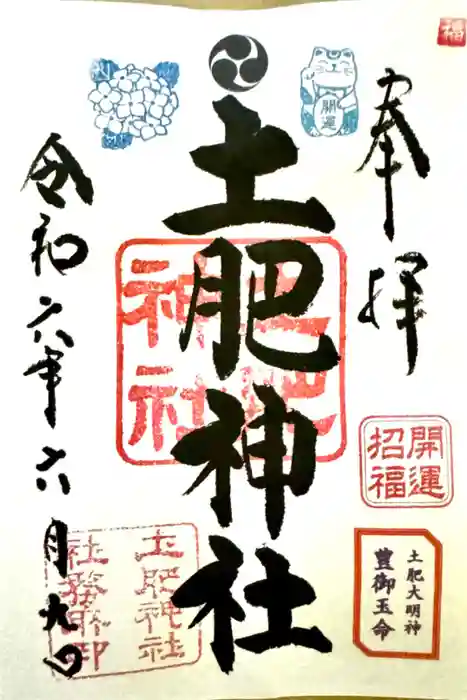 福
奉拝
開運
開運
招福
土肥大明神
豊御玉命
土肥神社
土肥
神社
令和六年六月九日
土肥神社
社務所印